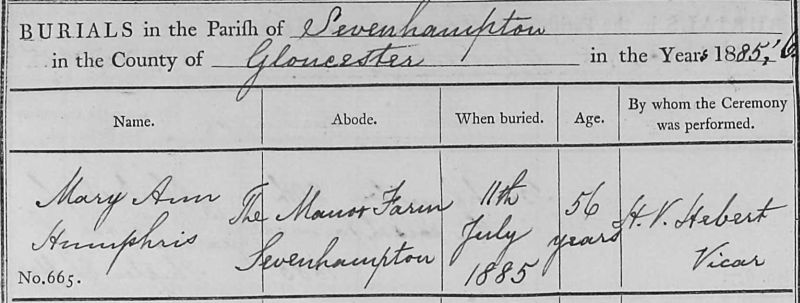 BURIALS in the Parish of Sevenhampton
in the County of Gloucester in the Years 1885,'6
Name. Abode. When buried. Age. By whom the Ceremony was performed.
Mary Ann Humphris
No. 665.
The Manor Farm Sevenhampton
11th July 1885
56 years
H. V. Hebert Vicar